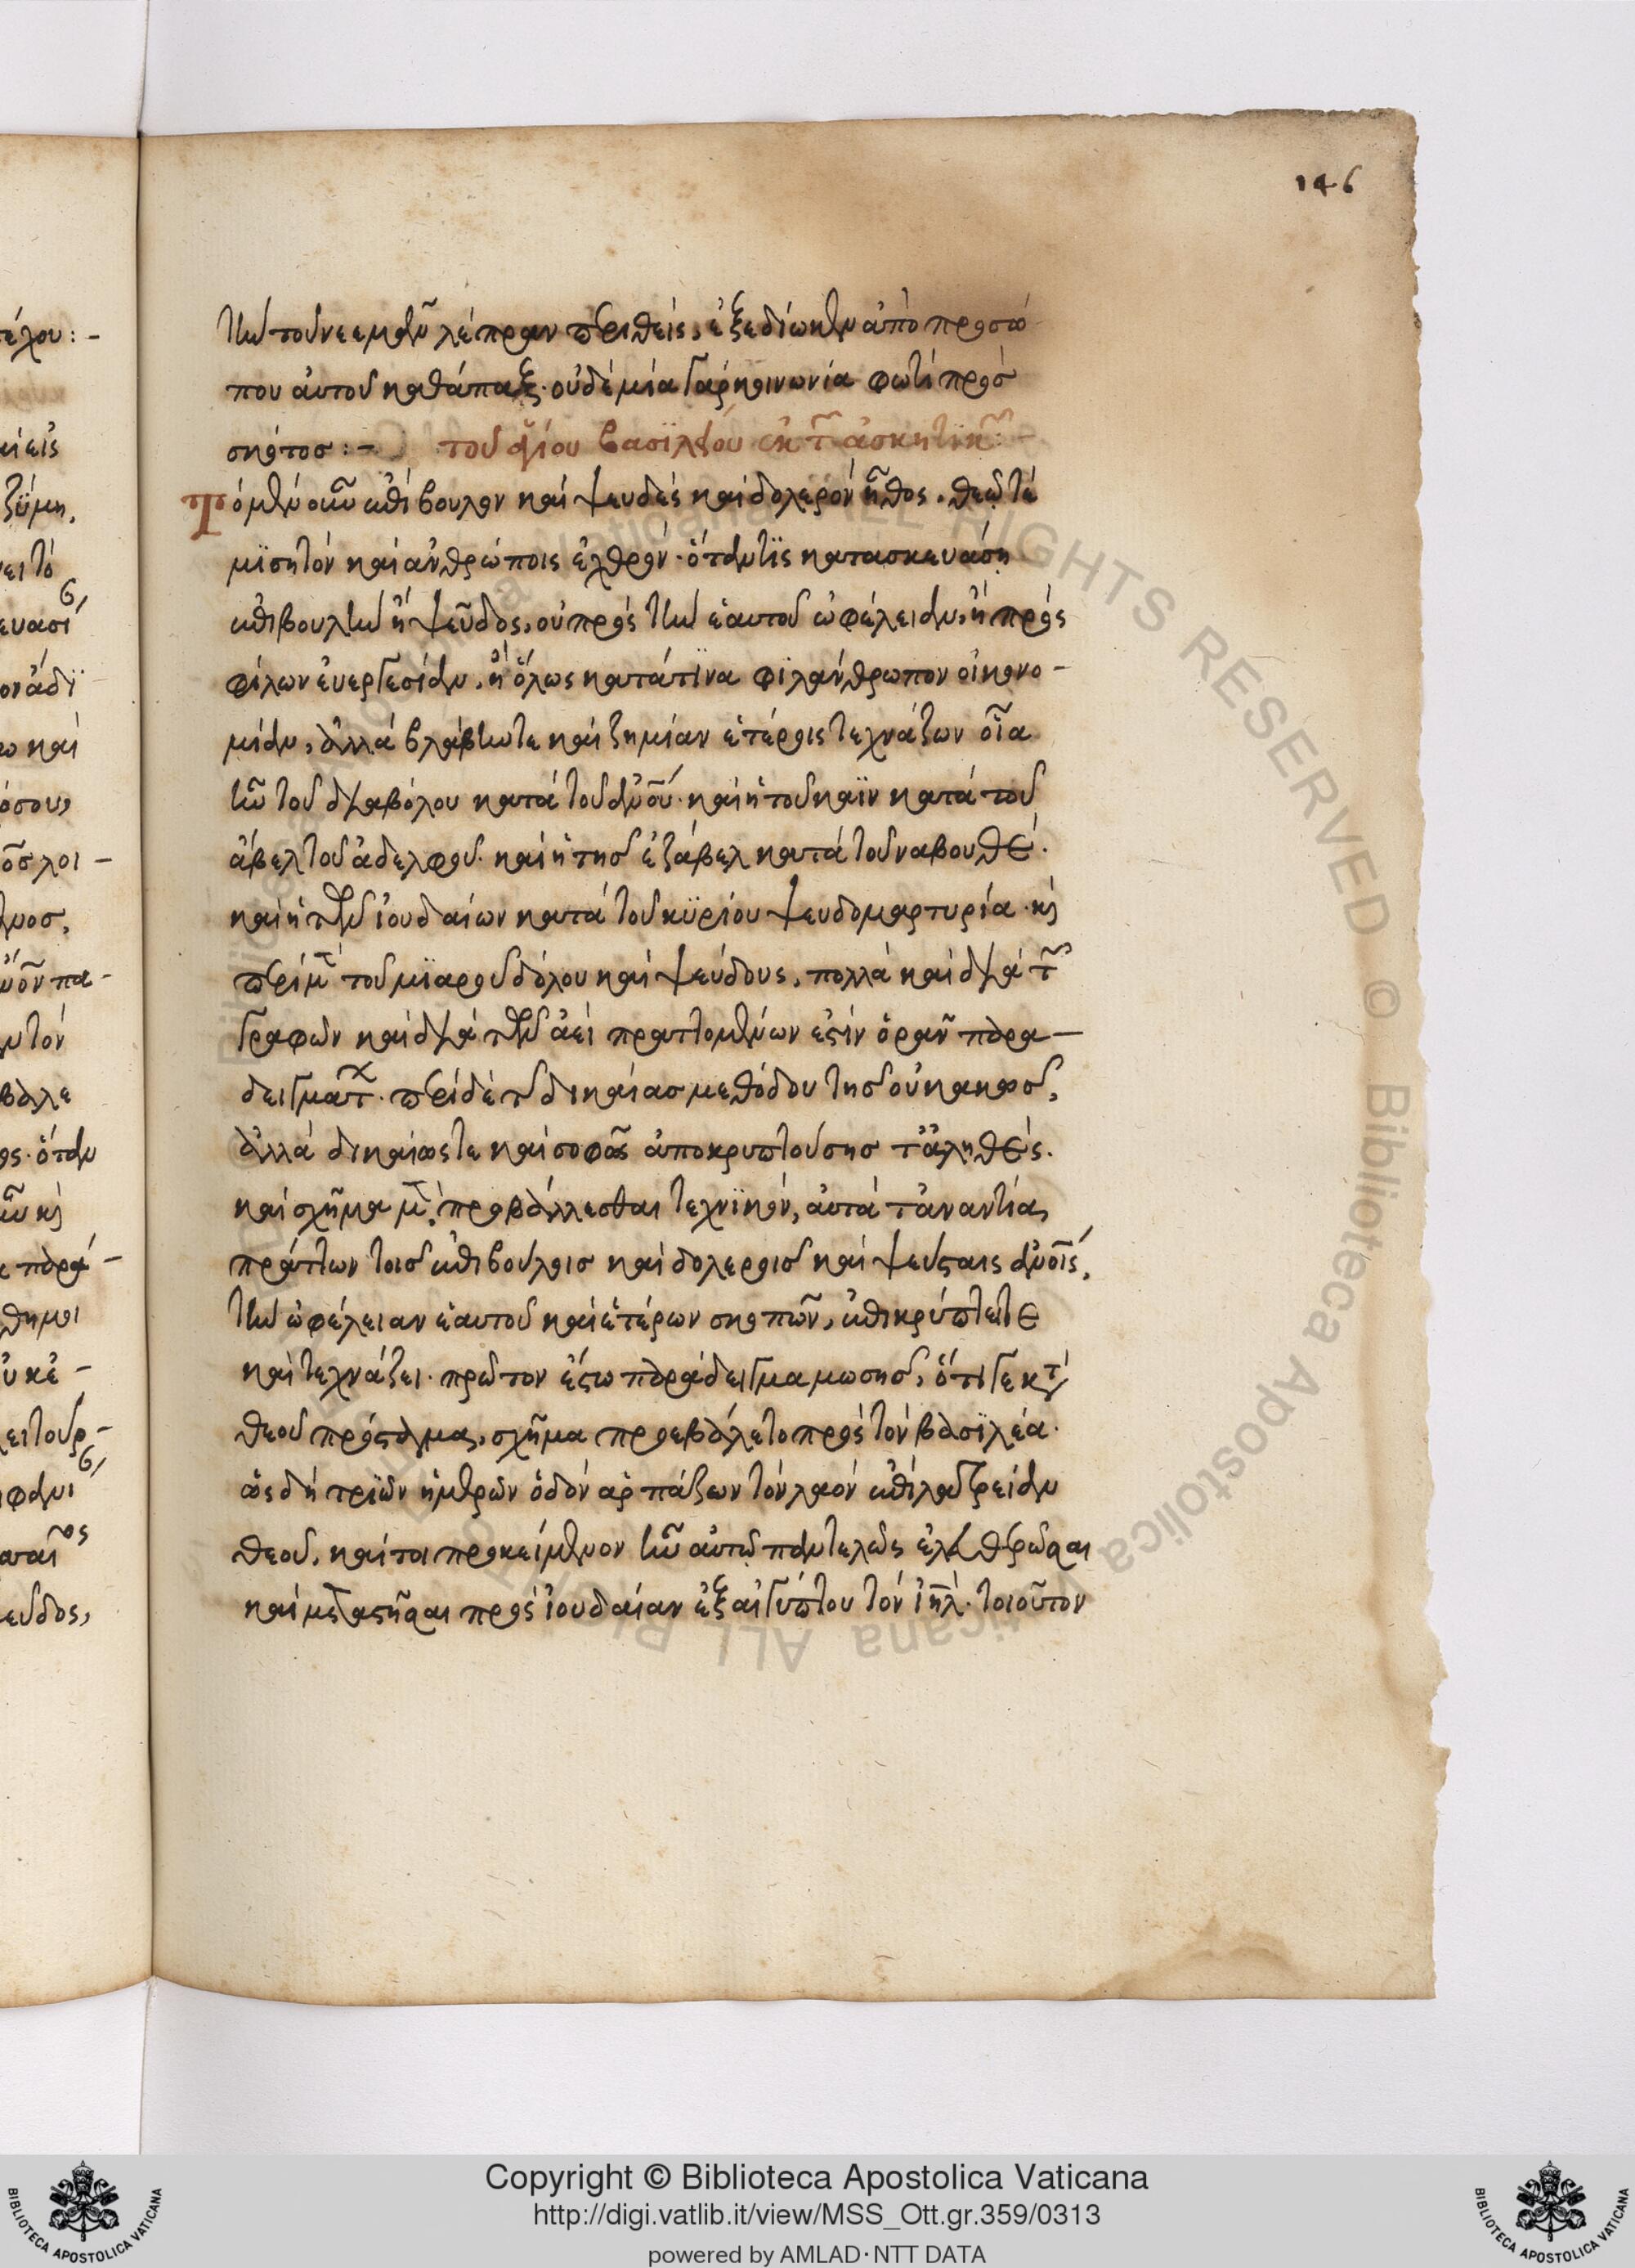 146
τὴν τοῦ νεεμὰν λέπραν περιθεὶς, ἐξεδίωκεν ἀπὸ προσώ
που αὐτοῦ καθάπαξ· οὐδὲ μία γὰρ κοινωνία φωτὶ πρὸς
σκότος:-
τοῦ ἁγίου βασϊλείου ἐκ τῶν ἀσκητικῶν:-
Τὸ μὲν οὖν ἐπίβουλον καὶ ψευδὲς καὶ δολερὸν ἦθος. θεῷ τὲ
μϊσητὸν καὶ ἀνθρώποις ἐχθρόν· ὅταν τὶς κατασκευάση
ἐπιβουλὴν ἢ ψεῦδος, οὐ πρὸς τὴν ἑαυτοῦ ὠφέλειαν, ἢ πρὸς
φίλων ἐυεργεσίαν, ἢ ὅλως κατά τϊνα φϊλάνθρωπον οἰκονο-
μίαν, ἀλλὰ βλάβην τε καὶ ζημίαν ἑτέροις τεχνάζων οἷα
ἦν τοῦ διαβόλου κατὰ τοῦ ἀνοῦ· καὶ ἡ τοῦ καϊν κατὰ τοῦ
ἄβελ τοῦ ἀδελφοῦ· καὶ ἡ τῆς ἐζάβελ κατὰ τοῦ ναβουθέ·
καὶ ἡ τῶν ἰουδαίων κατὰ τοῦ κϋρίου ψευδομαρτυρία· κὶ
περὶ μὲν τοῦ μϊαροῦ δόλου καὶ ψεύδους, πολλὰ καὶ διὰ τῶν
γραφῶν καὶ διὰ τῶν ἀεὶ πραττομένων ἐστὶν ὁρᾶν παρα-
δειγμάτων· περὶ δὲ τῆς δικαίας μεθόδου τῆς οὐ κακῶς,
ἀλλὰ δικαίως τε καὶ σοφῶς ἀποκρυπτούσης τἀληθές·
καὶ σχῆμα μὲν προβάλλεσθαι τεχνϊκὸν, αὐτὰ τἀναντία
πράττων τοῖς ἐπιβούλοις καὶ δολεροῖς καὶ ψεύσταις ἀνοῖς,
τὴν ὠφέλειαν ἑαυτοῦ καὶ ἑτέρων σκοπῶν, ἐπικρύπτει τὲ
καὶ τεχνάζει· πρῶτον ἔστω παράδειγμα μωσῆς, ὅτί γε κατὰ
θεοῦ πρόσταγμα, σχῆμα προεβάλετο πρὸς τὸν βασϊλέα·
ὡς δὴ τρϊῶν ἡμερῶν ὁδὸν ἁρπάζων τὸν λαὸν ἐπὶ λατρείαν
θεοῦ, καί τοι προκείμενον ἦν αὐτῷ παντελῶς ἐλευθερῶσαι
καὶ μεταστῆσαι πρὸς ἰουδαίαν ἐξ αἰγύπτου τὸν ἰηλ· τοιοῦτον
Copyright © Biblioteca Apostolica Vaticana
http://digi.vatlib.it/view/MSS_Ott.gr.359/0313
powered by AMLAD·NTT DATA
BIBLIOTECA APOSTOLICA VATICANA
BIBLIOTECA APOSTOLICA VATICANA